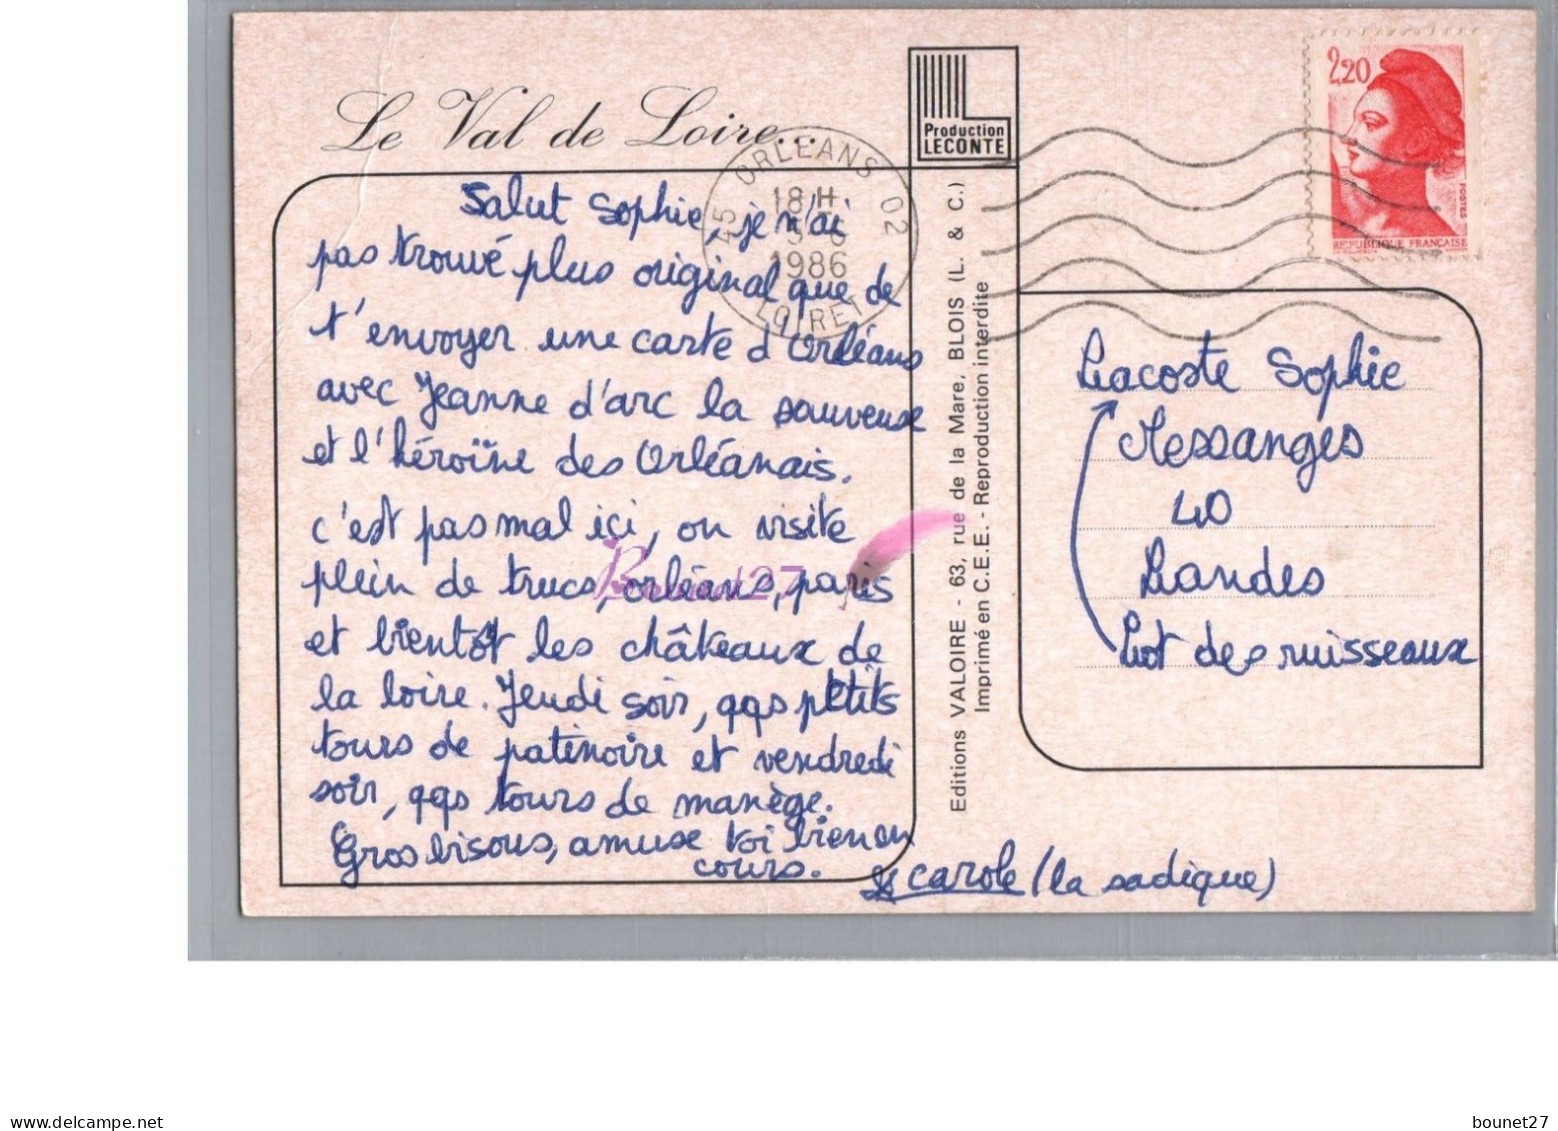 Le Val de Loire...
Production
LECONTE
2,20
POSTES
REPUBLIQUE FRANÇAISE
45 ORLEANS 02
18 H
1986
LOIRET
Salut Sophie, je n'ai
pas trouvé plus original que de
t'envoyer une carte d'Orléans
avec Jeanne d'arc la sauveuse
et l'héroïne des Orléanais.
c'est pas mal ici, on visite
plein de trucs, orléans, paris
et bientôt les châteaux de
la loire. Jeudi soir, qqs petits
tours de patinoire et vendredi
soir, qqs tours de manège.
Gros bisous, amuse toi bien en
cours.
carole (la sadique)
Editions VALOIRE - 63, rue de la Mare, BLOIS (L. & C.)
Imprimé en C.E.E. - Reproduction interdite
Lacoste Sophie
Messanges
40
Landes
Lot des ruisseaux
Bounet27
bounet27